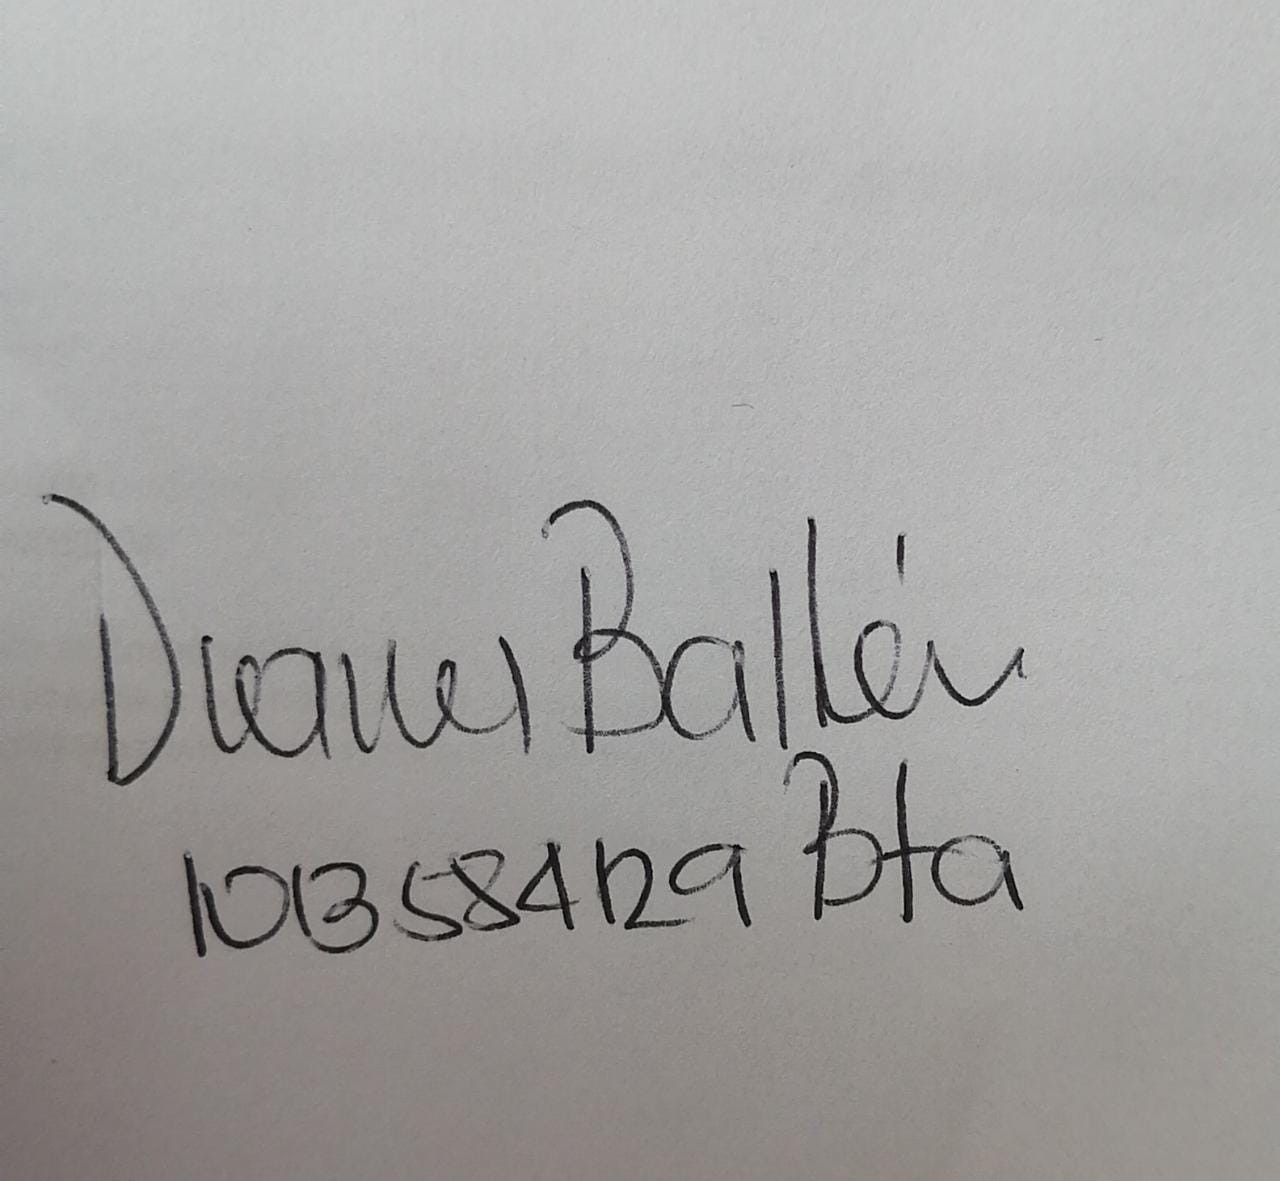 Diana Ballén
1013584129 Bta